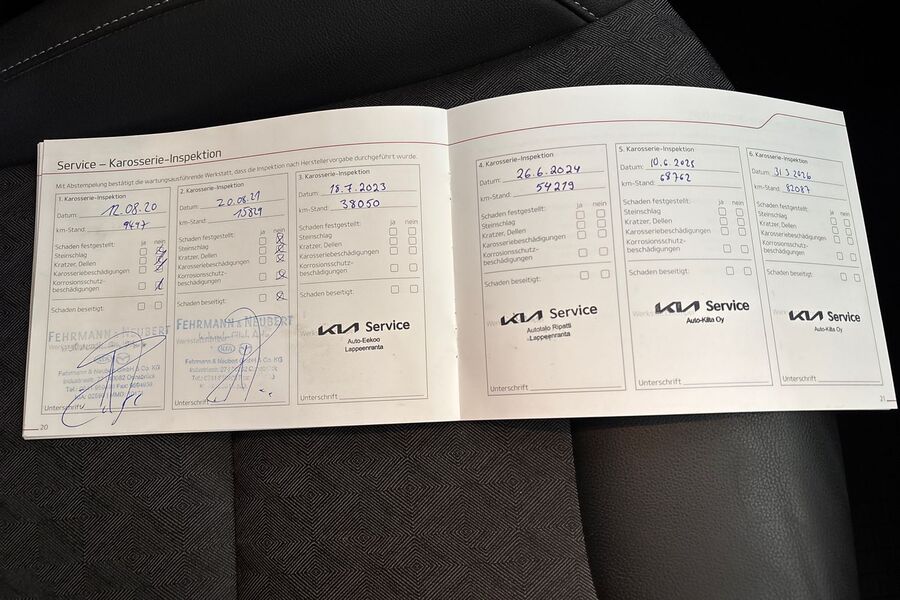 Service – Karosserie-Inspektion
Mit Abstempelung bestätigt die wartungsausführende Werkstatt, dass die Inspektion nach Herstellervorgabe durchgeführt wurde.
1. Karosserie-Inspektion
Datum: 12.08.20
km-Stand: 9447
Schaden festgestellt: ja nein
Steinschlag
Kratzer, Dellen
Karosseriebeschädigungen
Korrosionsschutz-
beschädigungen
Schaden beseitigt:
FEHRMANN & NEUBERT
Fehrmann & Neubert GmbH & Co. KG
Unterschrift
20
2. Karosserie-Inspektion
Datum: 20.08.21
km-Stand: 15829
Schaden festgestellt: ja nein
Steinschlag
Kratzer, Dellen
Karosseriebeschädigungen
Korrosionsschutz-
beschädigungen
Schaden beseitigt:
FEHRMANN & NEUBERT
Fehrmann & Neubert GmbH & Co. KG
Unterschrift
3. Karosserie-Inspektion
Datum: 18.7.2023
km-Stand: 38050
Schaden festgestellt: ja nein
Steinschlag
Kratzer, Dellen
Karosseriebeschädigungen
Korrosionsschutz-
beschädigungen
Schaden beseitigt:
KIA Service
Auto-Eekoo
Lappeenranta
Unterschrift
4. Karosserie-Inspektion
Datum: 26.6.2024
km-Stand: 54219
Schaden festgestellt: ja nein
Steinschlag
Kratzer, Dellen
Karosseriebeschädigungen
Korrosionsschutz-
beschädigungen
Schaden beseitigt:
KIA Service
Autotalo Ripatti
Lappeenranta
Unterschrift
5. Karosserie-Inspektion
Datum: 10.6.2025
km-Stand: 68762
Schaden festgestellt: ja nein
Steinschlag
Kratzer, Dellen
Karosseriebeschädigungen
Korrosionsschutz-
beschädigungen
Schaden beseitigt:
KIA Service
Auto-Kilta Oy
Unterschrift
6. Karosserie-Inspektion
Datum: 31.3.2026
km-Stand: 82087
Schaden festgestellt: ja nein
Steinschlag
Kratzer, Dellen
Karosseriebeschädigungen
Korrosionsschutz-
beschädigungen
Schaden beseitigt:
KIA Service
Auto-Kilta Oy
Unterschrift
21